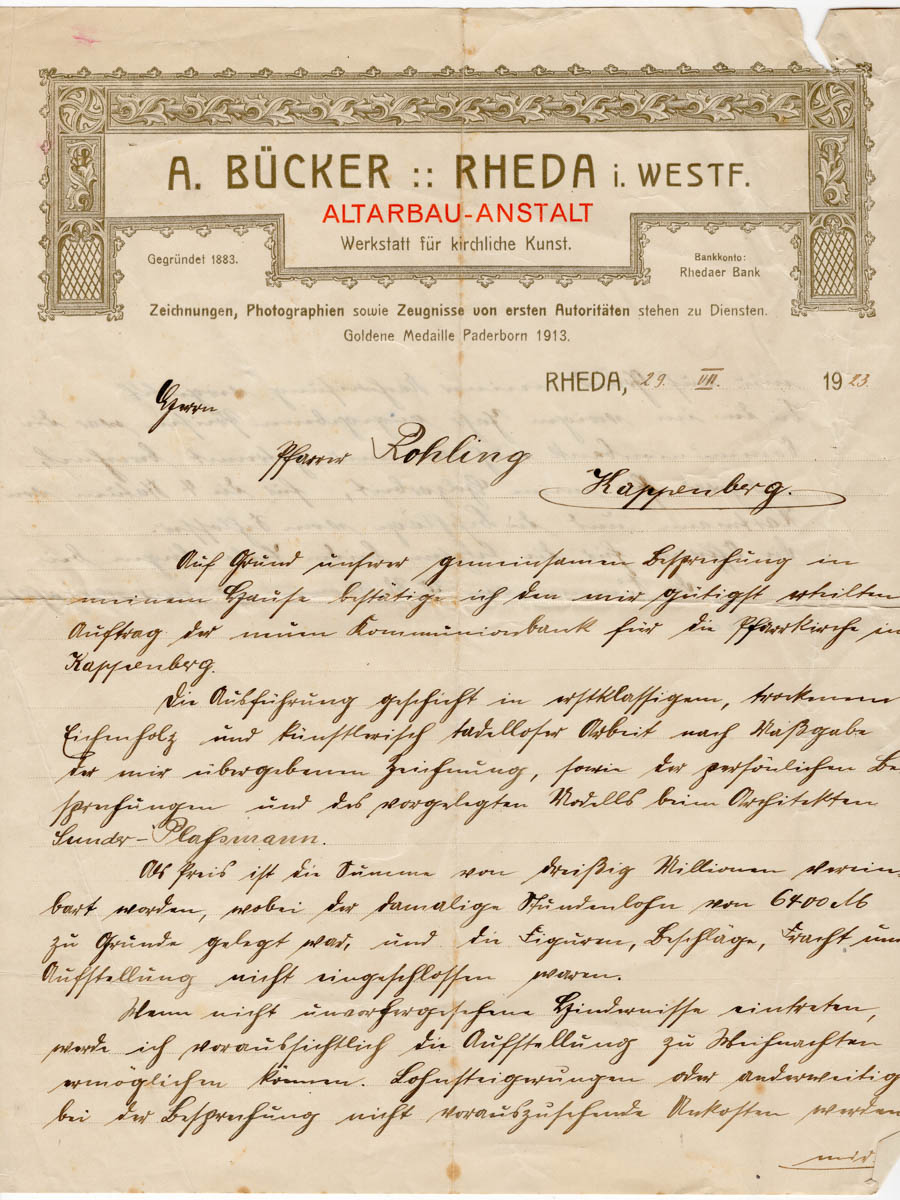 A. BÜCKER :: RHEDA i. WESTF.
ALTARBAU-ANSTALT
Werkstatt für kirchliche Kunst.
Gegründet 1883.
Bankkonto:
Rhedaer Bank
Zeichnungen, Photographien sowie Zeugnisse von ersten Autoritäten stehen zu Diensten.
Goldene Medaille Paderborn 1913.
RHEDA, 29. VII. 1923.
Herrn
Pfarrer Rohling
Kappenberg.
Auf Grund unserer gemeinsamen Besprechung in
meinem Hause bestätige ich den mir gütigst erteilten
Auftrag der neuen Kommunionbank für die Pfarrkirche in
Kappenberg.
Die Ausführung geschieht in erstklassigem, trockenem
Eichenholz und künstlerisch tadelloser Arbeit nach Maßgabe
der mir übergebenen Zeichnung, sowie der persönlichen Be
sprechungen und des vorgelegten Modells beim Architekten
Sunder-Plaßmann.
Als Preis ist die Summe von dreißig Millionen verein-
bart worden, wobei der damalige Stundenlohn von 6400 M
zu Grunde gelegt war, und die Figuren, Beschläge, Fracht und
Aufstellung nicht eingeschlossen waren.
Wenn nicht unvorhergesehene Hindernisse eintreten,
werde ich voraussichtlich die Aufstellung zu Weihnachten
ermöglichen können. Lohnsteigerungen oder anderweitig
bei der Besprechung nicht vorauszusehende Unkosten werden
mir